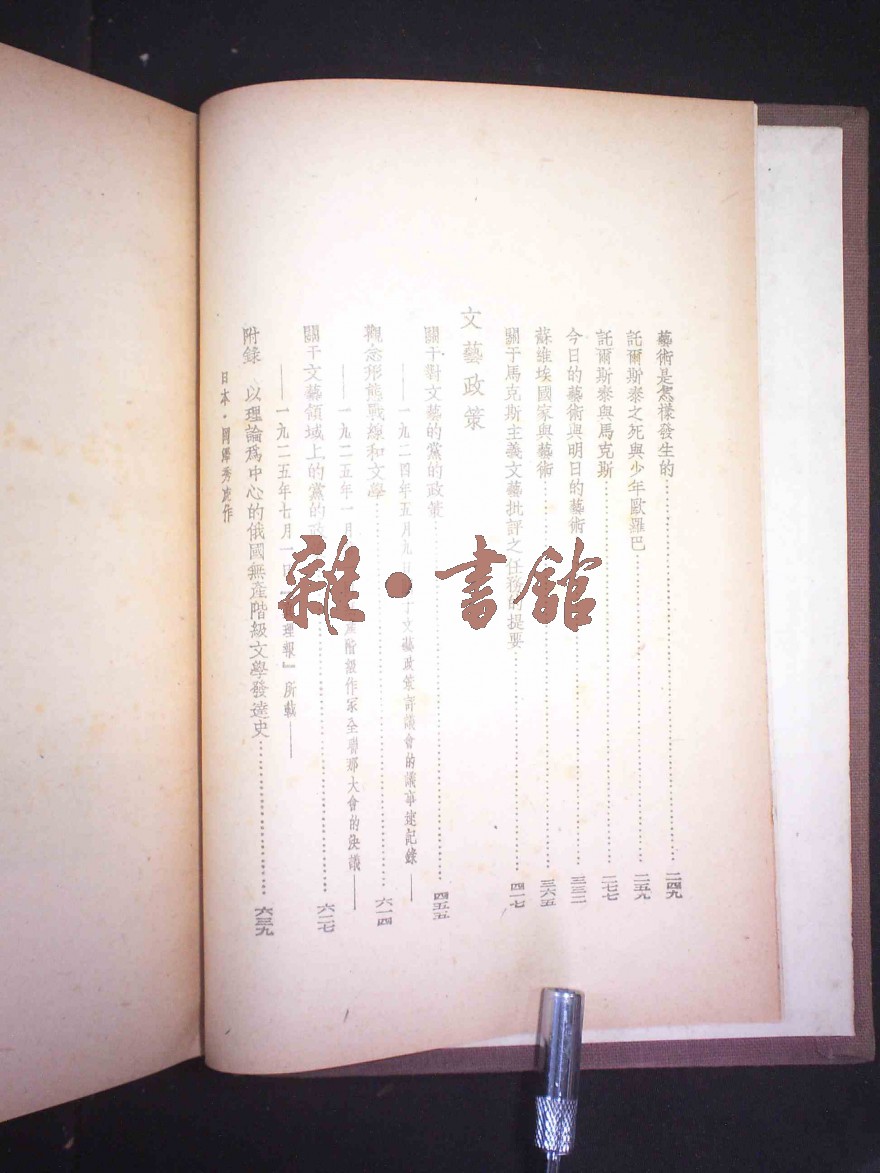 藝術是怎樣發生的……二四九
託爾斯泰之死與少年歐羅巴……二五九
託爾斯泰與馬克斯……二七七
今日的藝術與明日的藝術……三三二
蘇維埃國家與藝術……三六五
關于馬克斯主義文藝批評之任務的提要……四一七
文藝政策
關于對文藝的黨的政策……四五五
——一九二四年五月九日 文藝政策討議會的議事速記錄——
觀念形態戰線和文學……六一四
——一九二五年一月 產階級作家全聯邦大會的決議——
關于文藝領域上的黨的……六二七
——一九二五年七月一日 理報』所載——
附錄 以理論爲中心的俄國無產階級文學發達史……六三九
日本·岡澤秀虎作
雜·書館